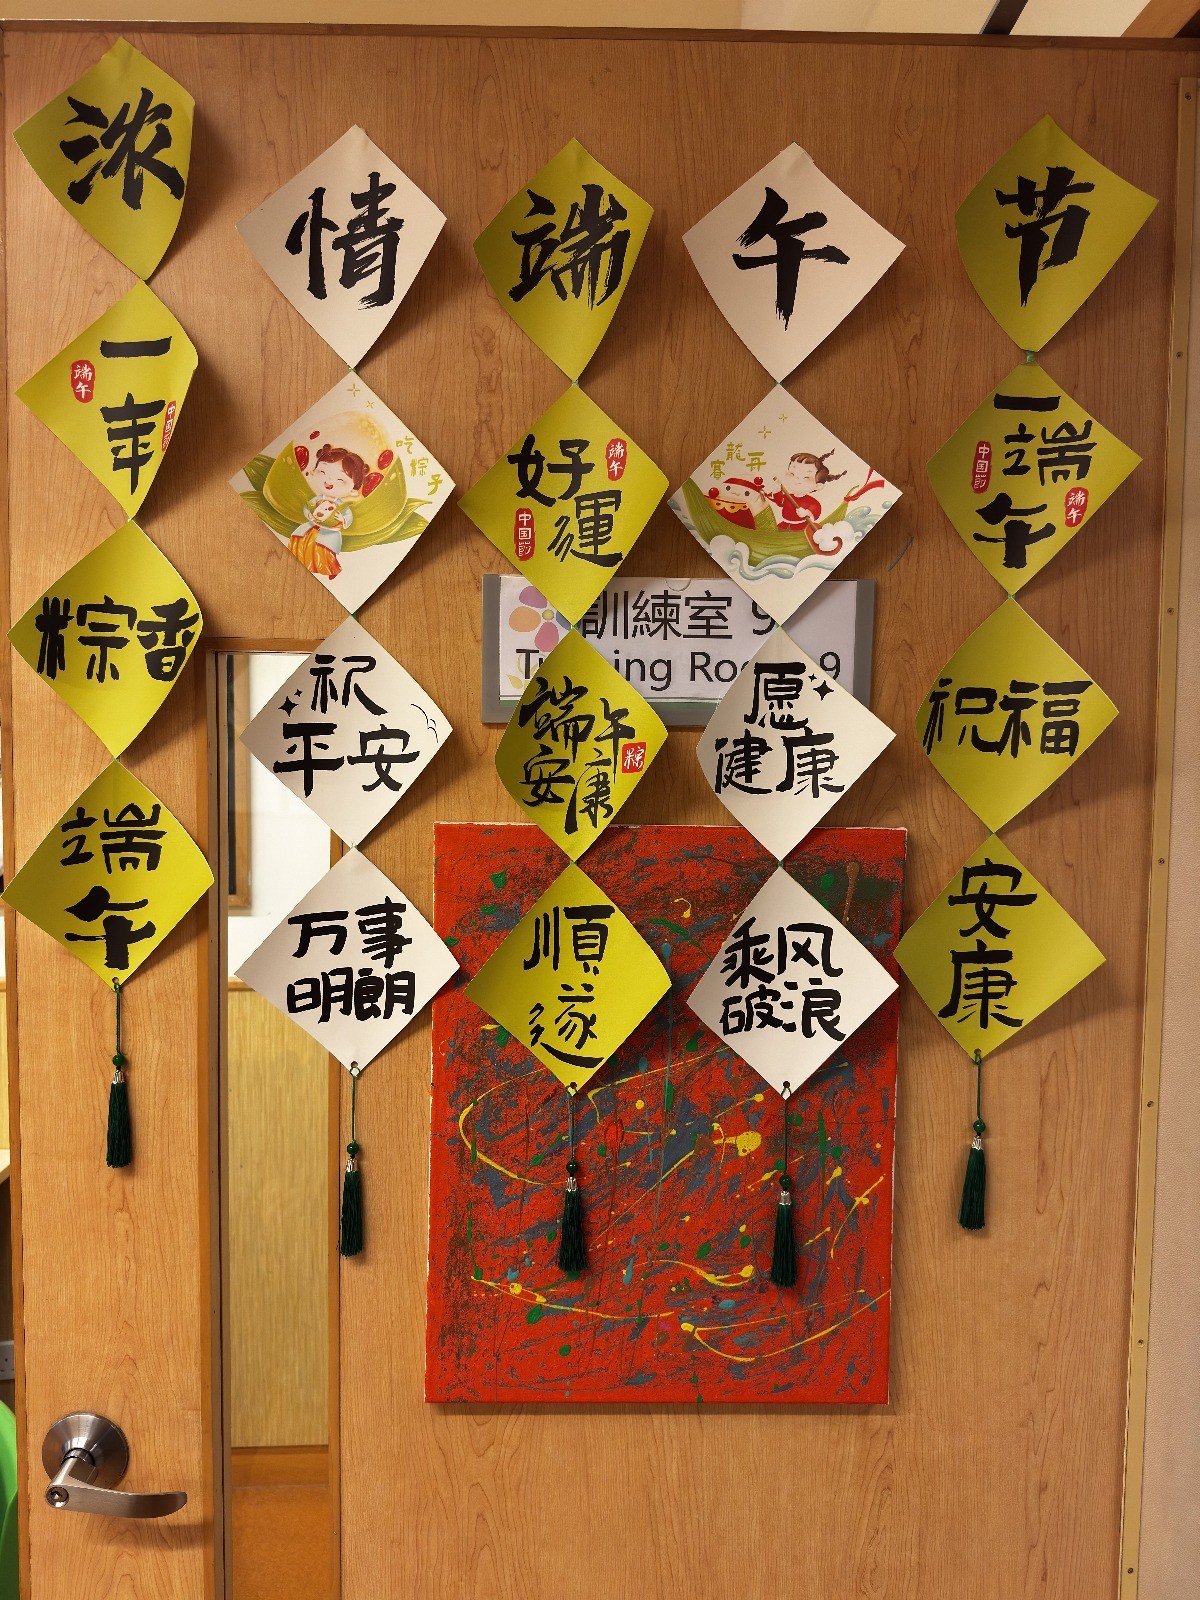 浓
情
端
午
节
一
年
端午
中国节
粽香
端
午
吃
粽子
祝
平安
万事
明朗
好
運
端午
中国节
端午
安康
粽
順
遂
賽
龍舟
愿
健康
乘风
破浪
一端
午
中国节
端午
祝福
安
康
訓練室 9